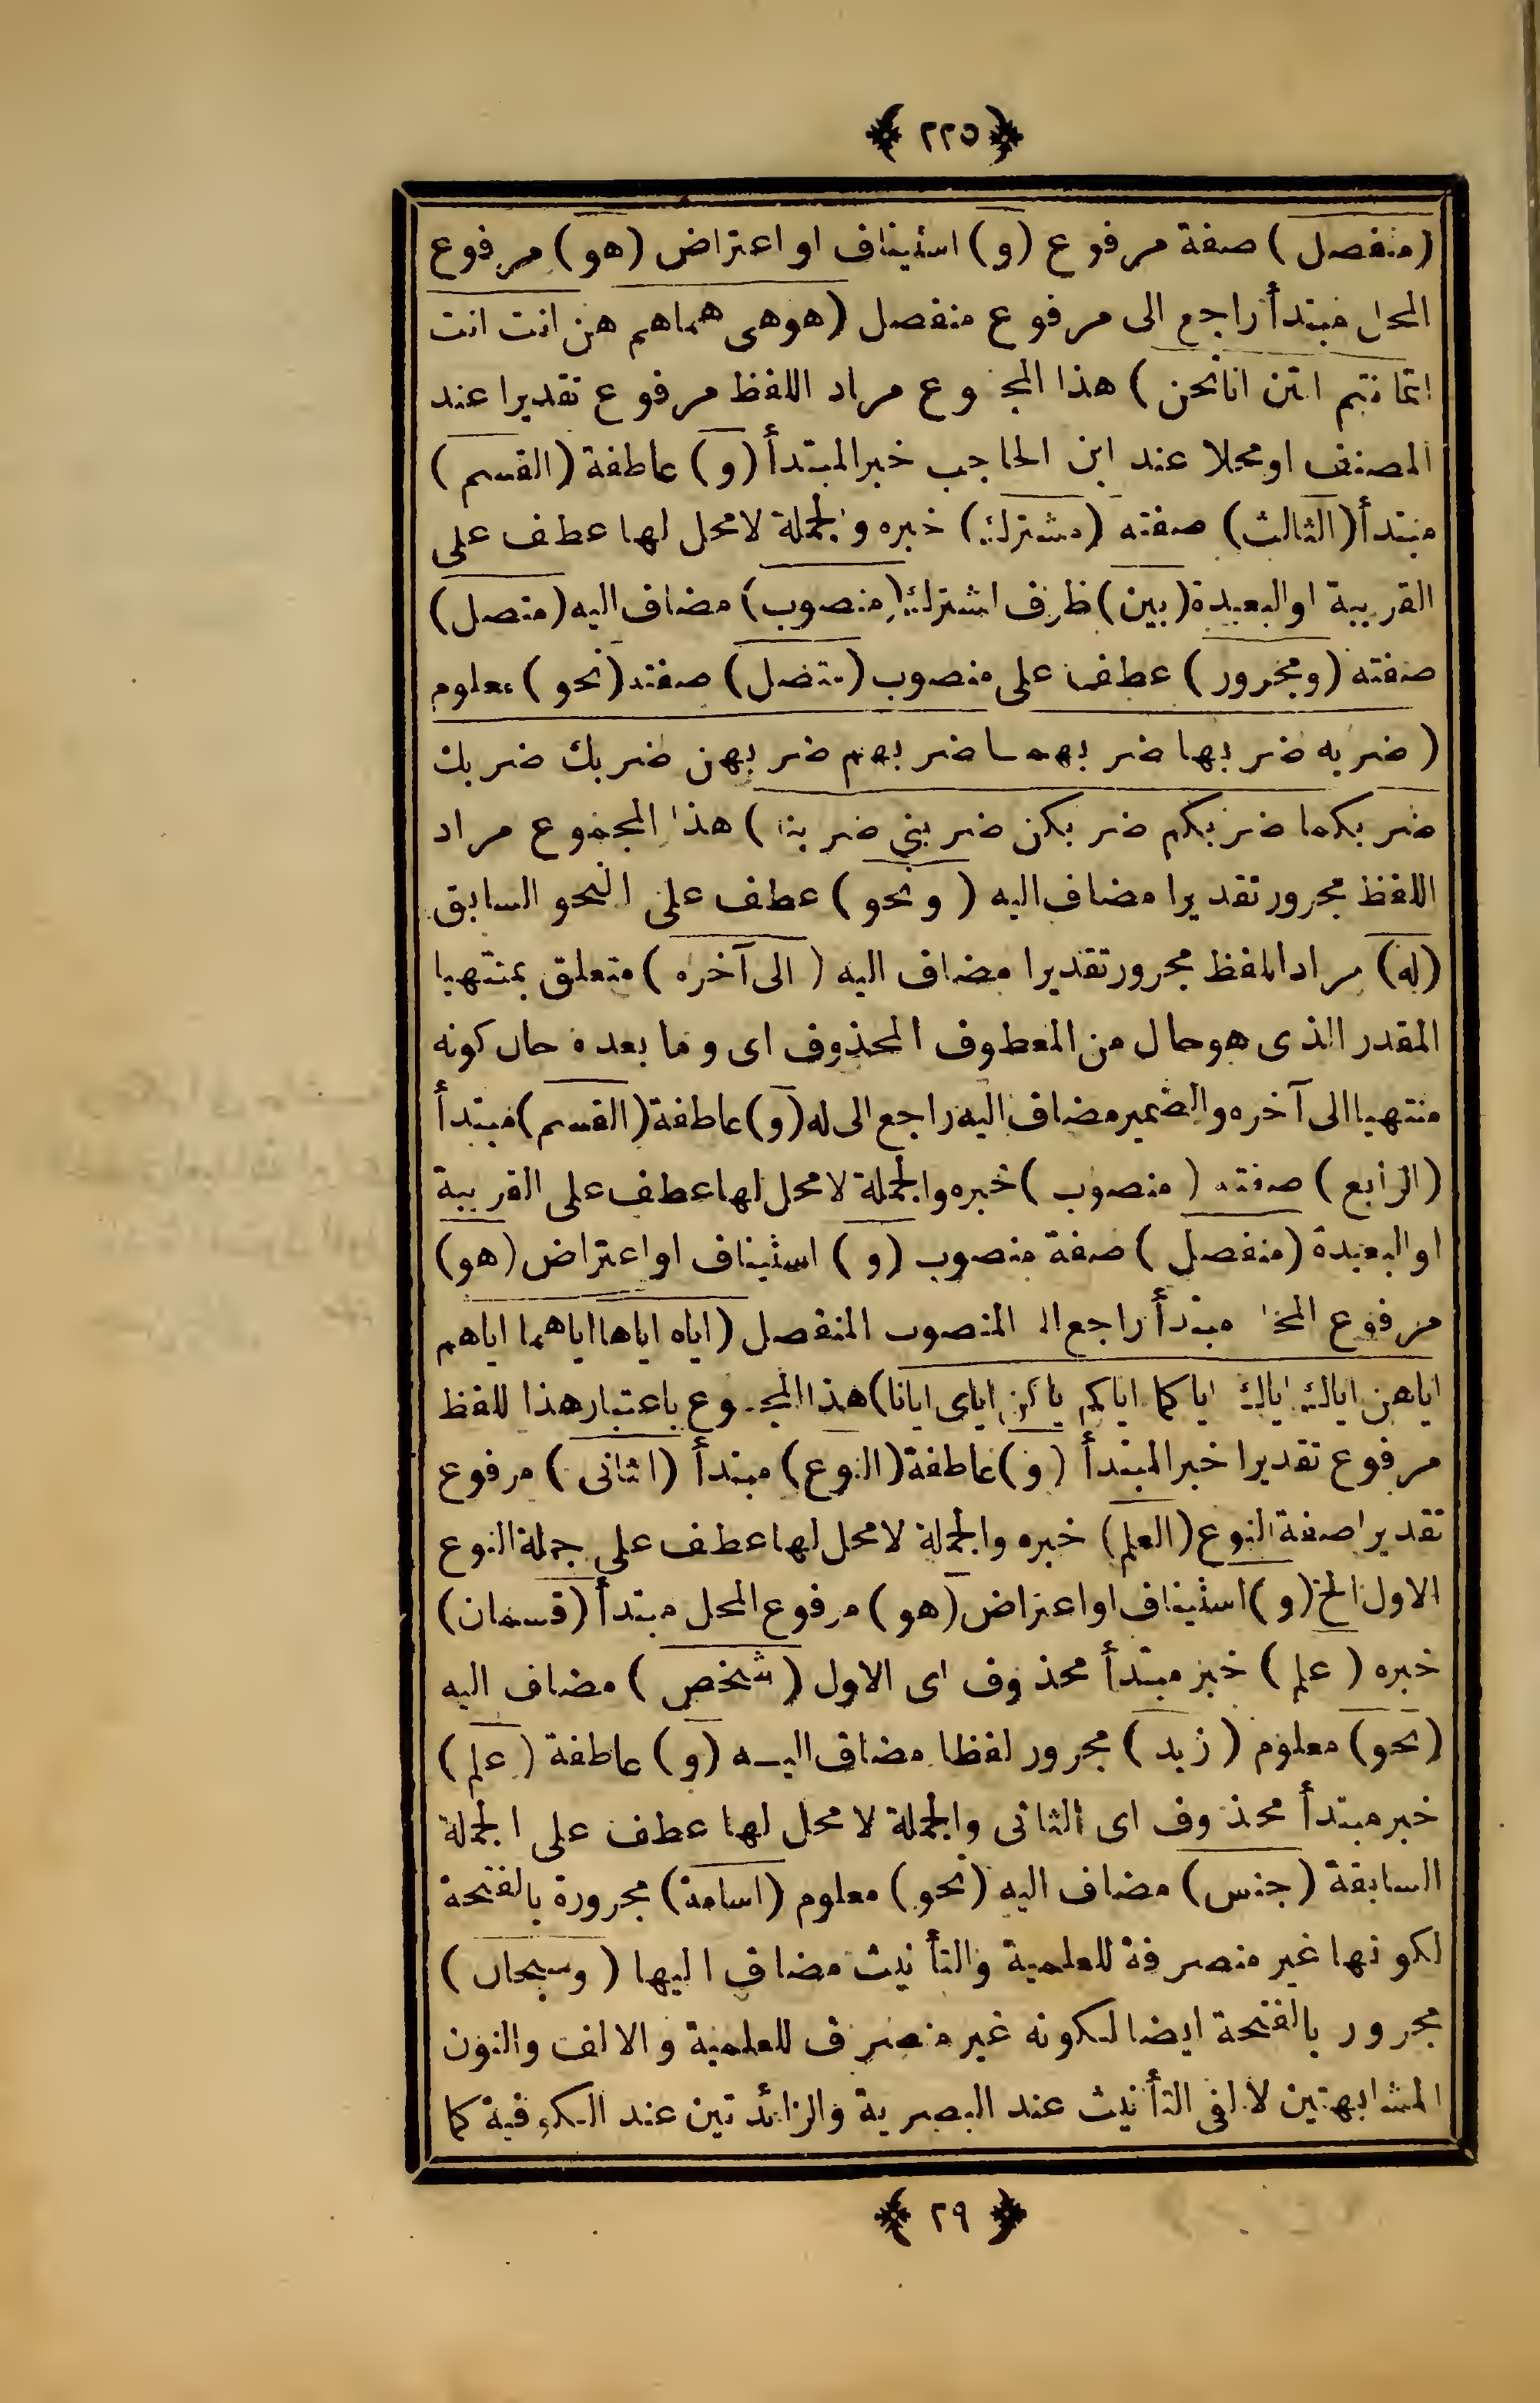 ﴿ ٢٢٥ ﴾
(منفصل) صفة مرفوع (و) استيناف او اعتراض (هو) مرفوع
المحل مبتدأ راجع الى مرفوع منفصل (هو هى هما هم هن انت انت
انتما انتم انتن انا نحن) هذا المجموع مراد اللفظ مرفوع تقديرا عند
المصنف او محلا عند ابن الحاجب خبر المبتدأ (و) عاطفة (القسم)
مبتدأ (الثالث) صفته (مشترك) خبره والجملة لا محل لها عطف على
القريبة او البعيدة (بين) ظرف اشترك (منصوب) مضاف اليه (متصل)
صفته (ومجرور) عطف على منصوب (متصل) صفته (نحو) معلوم
(ضربه ضربها ضربهما ضربهم ضربهن ضربك ضربك
ضربكما ضربكم ضربكن ضربنى ضربنا) هذا المجموع مراد
اللفظ مجرور تقديرا مضاف اليه (ونحو) عطف على النحو السابق
(له) مراد اللفظ مجرور تقديرا مضاف اليه (الى آخره) متعلق بمنتهيا
المقدر الذى هو حال من المعطوف المحذوف اى وما بعده حال كونه
منتهيا الى آخره والضمير مضاف اليه راجع الى له (و) عاطفة (القسم) مبتدأ
(الرابع) صفته (منصوب) خبره والجملة لا محل لها عطف على القريبة
او البعيدة (منفصل) صفة منصوب (و) استيناف او اعتراض (هو)
مرفوع المحل مبتدأ راجع الى المنصوب المنفصل (اياه اياها اياهما اياهم
اياهن اياك اياك اياكما اياكم اياكن اياى ايانا) هذا المجموع باعتبار هذا للفظ
مرفوع تقديرا خبر المبتدأ (و) عاطفة (النوع) مبتدأ (الثانى) مرفوع
تقديرا صفة النوع (العلم) خبره والجملة لا محل لها عطف على جملة النوع
الاول الخ (و) استيناف او اعتراض (هو) مرفوع المحل مبتدأ (قسمان)
خبره (علم) خبر مبتدأ محذوف اى الاول (شخص) مضاف اليه
(نحو) معلوم (زيد) مجرور لفظا مضاف اليه (و) عاطفة (علم)
خبر مبتدأ محذوف اى الثانى والجملة لا محل لها عطف على الجملة
السابقة (جنس) مضاف اليه (نحو) معلوم (اسامة) مجرورة بالفتحة
لكونها غير منصرفة للعلمية والتأنيث مضاف اليها (وسبحان)
مجرور بالفتحة ايضا لكونه غير منصرف للعلمية والالف والنون
المشابهتين لالفى التأنيث عند البصرية والزائدتين عند الكوفية كما
﴿ ٢٩ ﴾